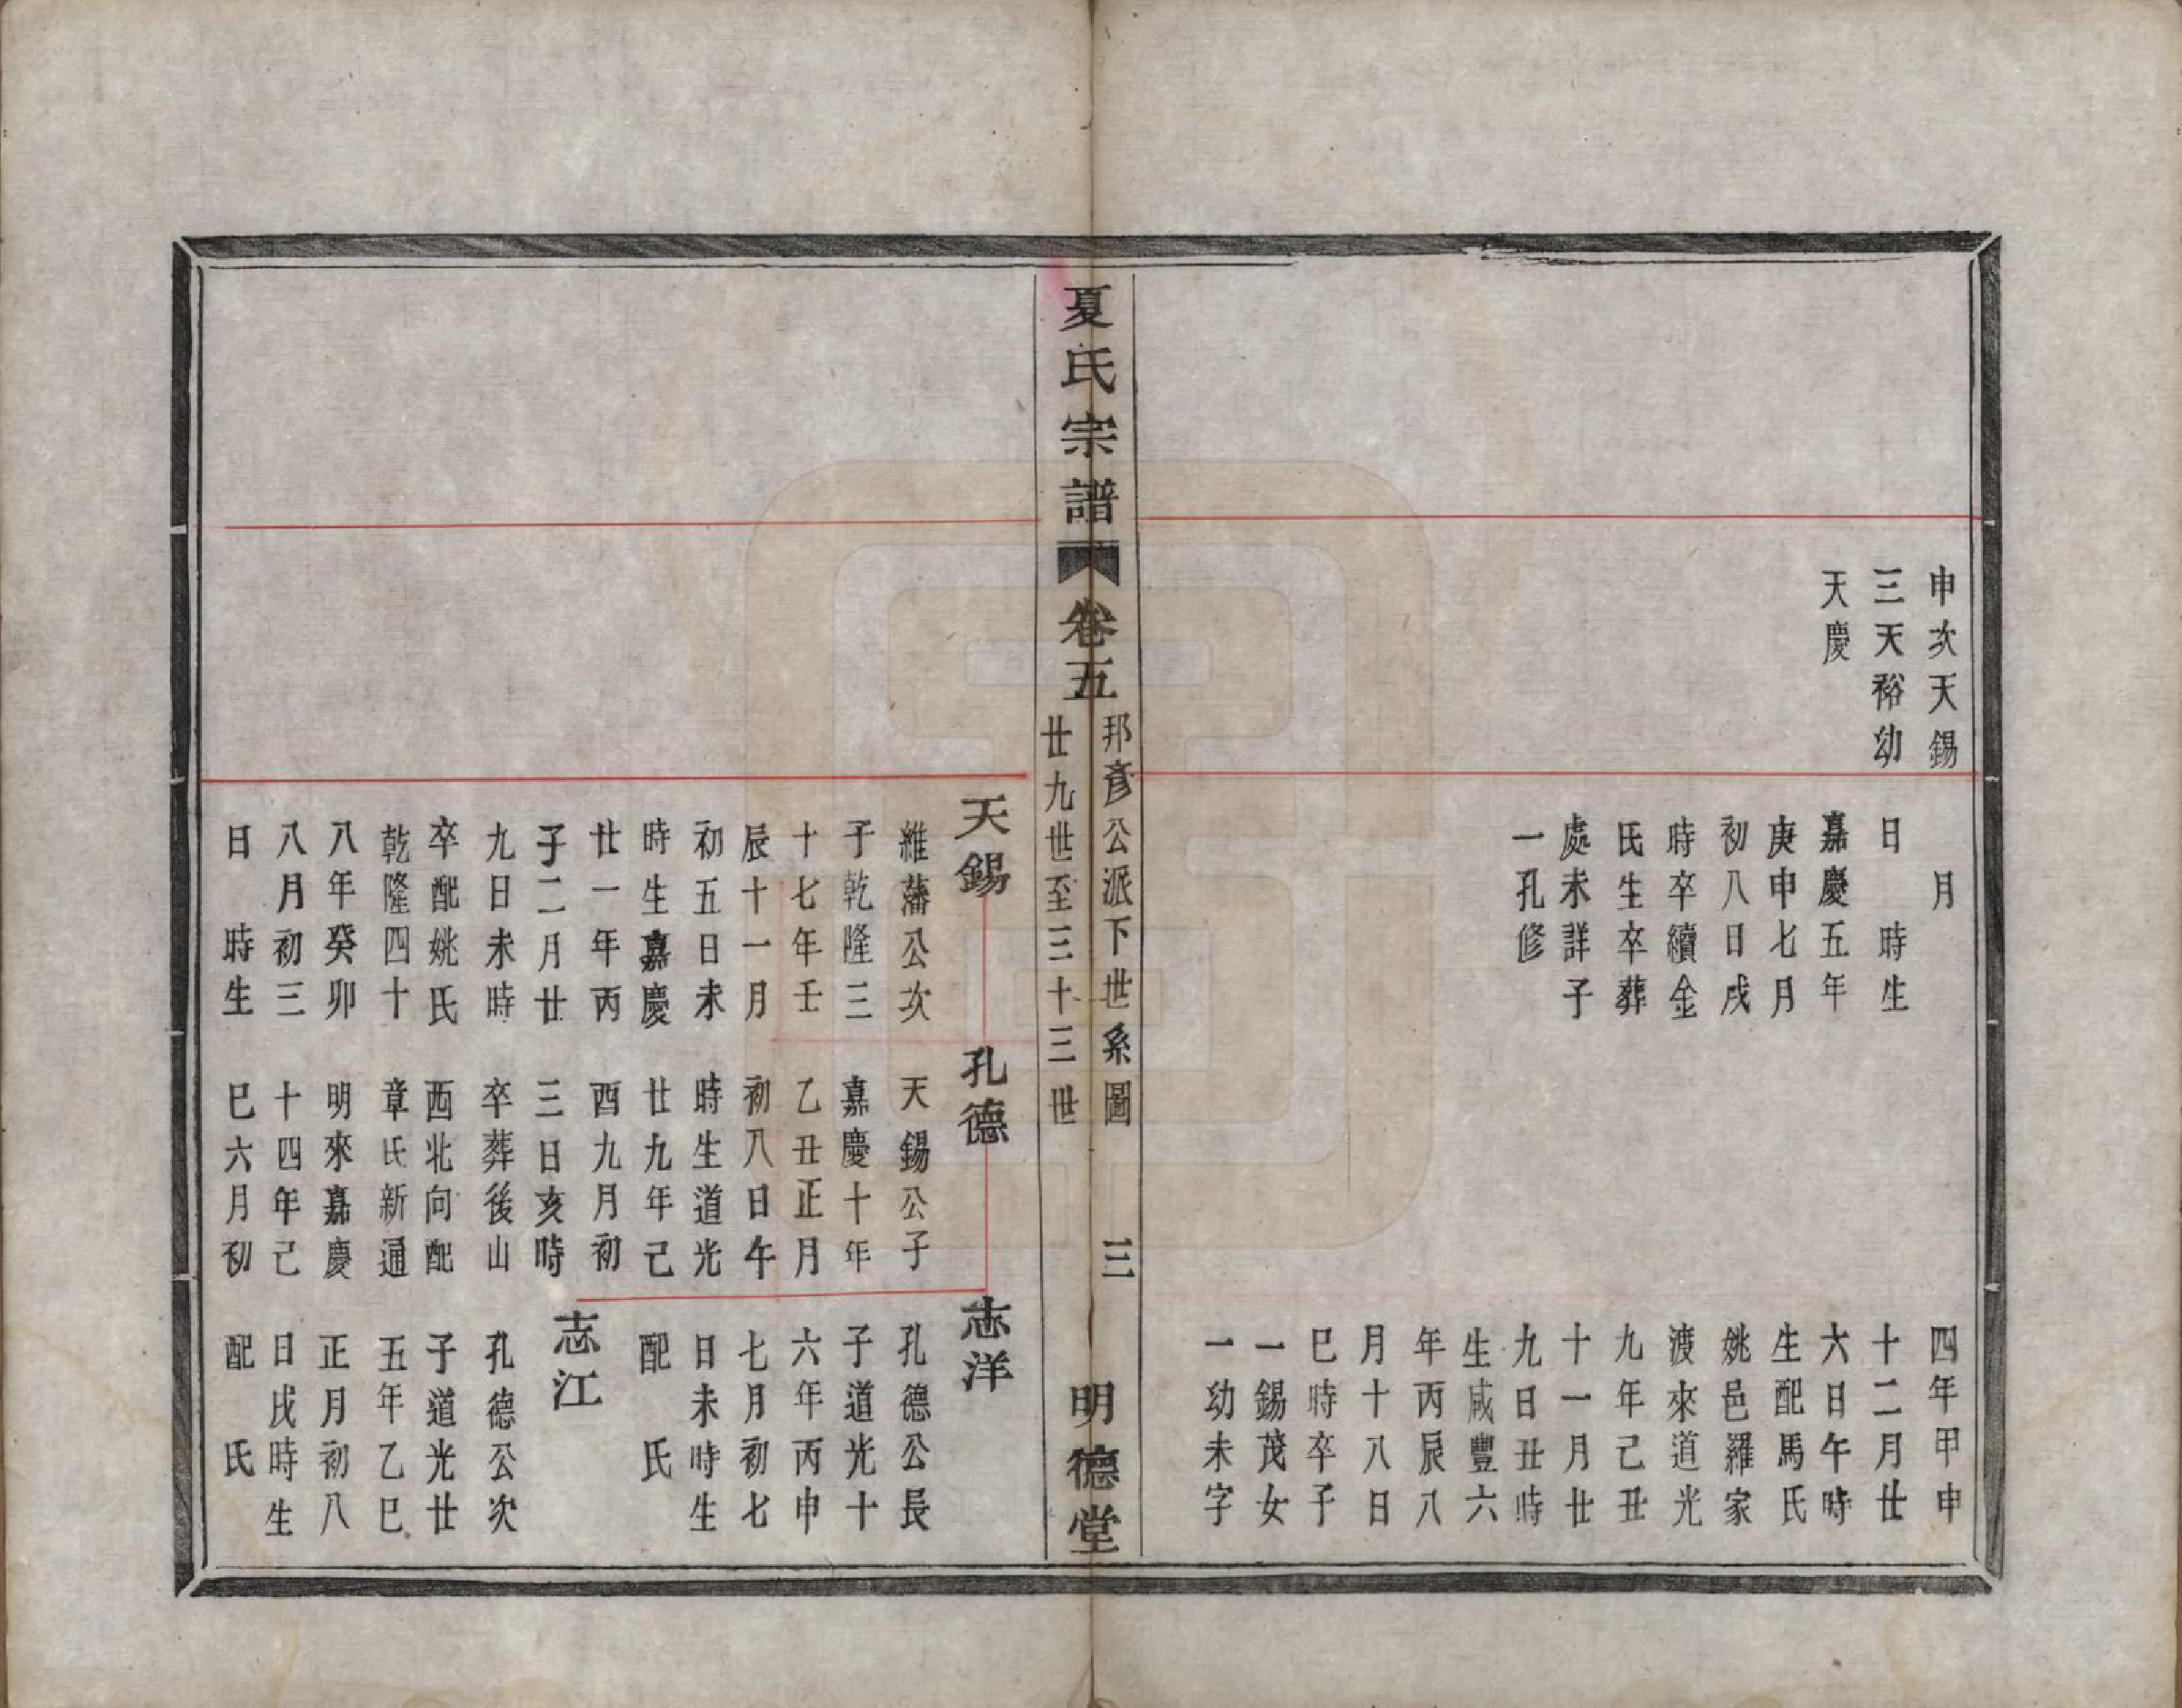 申次天錫
三天裕幼
天慶
月
日　時生
嘉慶五年
庚申七月
初八日戌
時卒續金
氏生卒葬
處未詳子
一孔修
四年甲申
十二月廿
六日午時
生配馬氏
姚邑羅家
渡來道光
九年己丑
十一月廿
九日丑時
生咸豐六
年丙辰八
月十八日
巳時卒子
一錫茂女
一幼未字
夏氏宗譜
卷五
邦彥公派下世系圖
廿九世至三十三世
三
明德堂
天錫
維藩公次
子乾隆三
十七年壬
辰十一月
初五日未
時生嘉慶
廿一年丙
子二月廿
九日未時
卒配姚氏
乾隆四十
八年癸卯
八月初三
日　時生
孔德
天錫公子
嘉慶十年
乙丑正月
初八日午
時生道光
廿九年己
酉九月初
三日亥時
卒葬後山
西北向配
章氏新通
明來嘉慶
十四年己
巳六月初
志洋
孔德公長
子道光十
六年丙申
七月初七
日未時生
配　氏
志江
孔德公次
子道光廿
五年乙巳
正月初八
日戌時生
配　氏